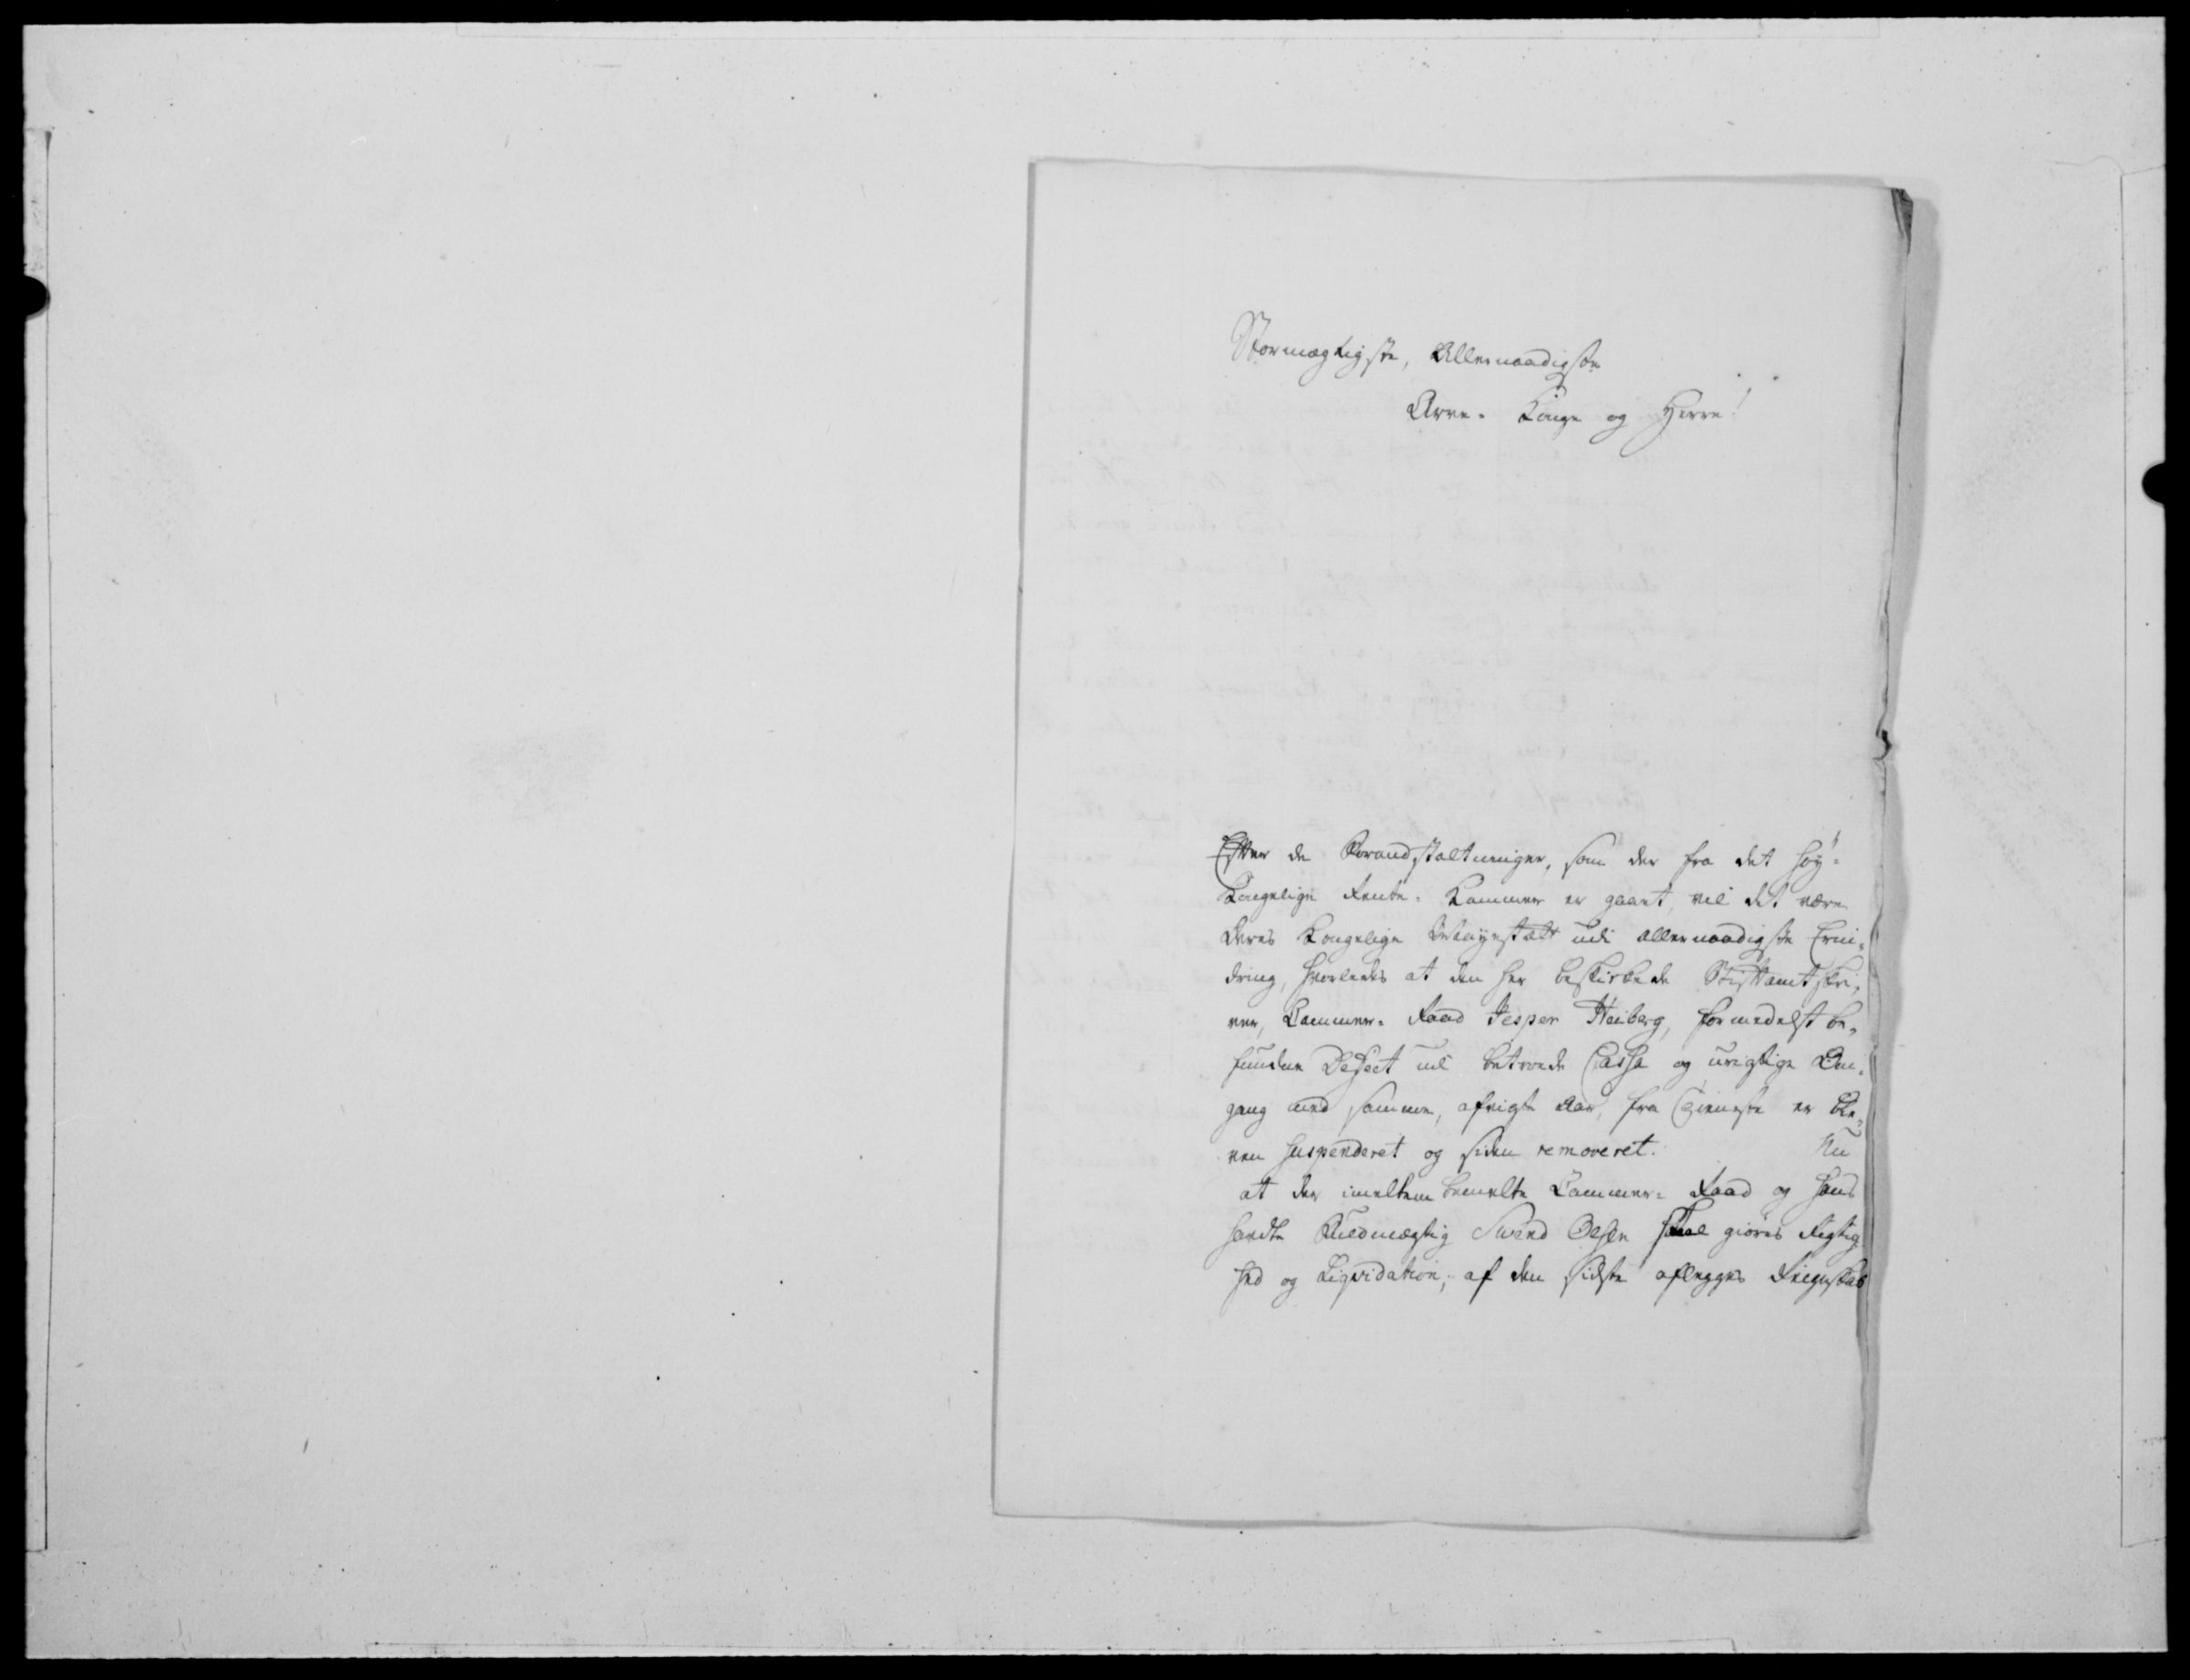 Stormægtigste, Allernaadigste
Arve- Konge og Herre!
Efter de Foranstaltninger, som der fra det høy-
Kongelige Rente- Kammer er gaaet, vil det være
Deres Kongelige Mayestæt udi allernaadigste Erin-
dring, hvorledes at den her beskikkede Stiftamtskri-
ver, Cammer- Raad Jesper Heiberg, formedelst be-
funden Defect udi betroede Cassa og urigtige Om-
gang med samme, afvigte Aar, fra Tieneste er ble-
ven suspenderet og siden removeret. Nu
at der imellem bemelte Cammer- Raad og hans
hafdte Fuldmægtig Svend Olsen skal giøres Rigtig
hed og Liqvidation, af den sidste aflegges Reignskab